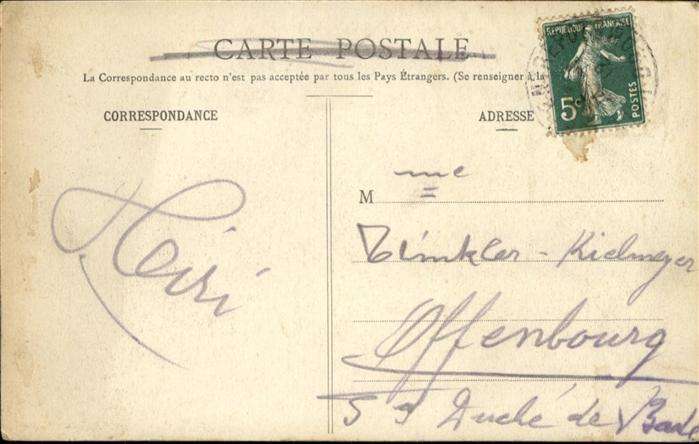 CARTE POSTALE
La Correspondance au recto n'est pas acceptée par tous les Pays Étrangers. (Se renseigner à la
CORRESPONDANCE
ADRESSE
REPUBLIQUE FRANÇAISE
5c
POSTES
M me
Zimkler - Kielmeyer
Offenbourg
Duché de Bade